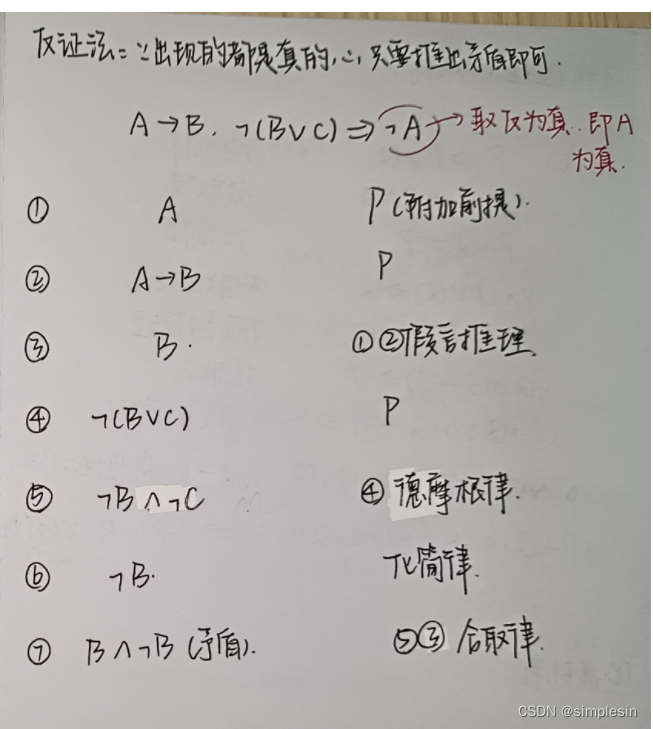 反证法: ∵出现的都是真的, ∴只要推出矛盾即可.
A→B, ¬(B∨C)⇒¬A → 取反为真. 即A
为真.
① A P(附加前提).
② A→B P
③ B. ①②假言推理.
④ ¬(B∨C) P
⑤ ¬B∧¬C ④德摩根律.
⑥ ¬B. 化简律.
⑦ B∧¬B (矛盾). ⑤③ 合取律.
CSDN @simplesin